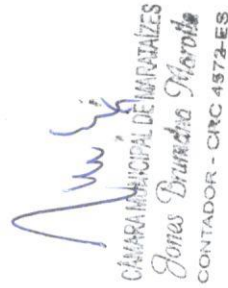 CÂMARA MUNICIPAL DE MARATAÍZES
Jones Brumana Morotto
CONTADOR - CRC 4572-ES